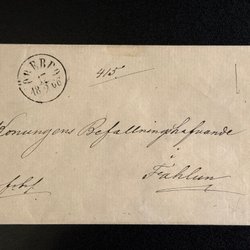 ÖREBRO
17
1866
415.
Konungens Befallningshafvande
i
Fahlun